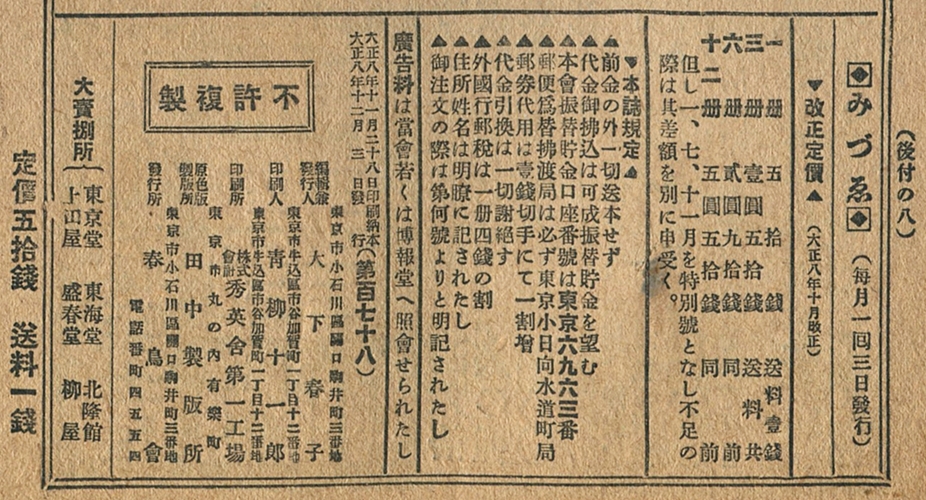 (後付の八)
みづゑ (毎月一回三日發行)
▼改正定價▲ (大正八年十月改正)
一册 五拾錢 送料壹錢
三册 壹圓五拾錢 送料共
六册 貳圓九拾錢 同前
十二册 五圓五拾錢 同前
但し一、七、十一月を特別號となし不足の
際は其差額を別に申受く。
▼本誌規定▲
▲前金の外一切送本せず
▲代金御拂込は可成振替貯金を望む
▲本會振替貯金口座番號は東京六九六三番
▲郵便爲替拂渡局は必ず東京小日向水道町局
▲郵券代用は壹錢切手にて一割增
▲代金引換は一切謝絶す
▲外國行郵税は一册四錢の割
▲住所姓名は明瞭に記されたし
▲御注文の際は第何號よりと明記されたし
廣告料は當會若くは博報堂へ照會せられたし
大正八年十一月二十八日印刷納本
大正八年十二月三日發行
(第百七十八)
不許複製
東京市小石川區關口駒井町三番地
編輯兼發行人 大下春子
東京市牛込區市谷加賀町一丁目十二番地
印刷人 青柳十一郎
東京市牛込區市谷加賀町一丁目十二番地
印刷所 株式會計秀英舍第一工場
東京市丸の内有樂町
原色版製版所 田中製版所
東京市小石川區關口駒井町三番地
發行所 春鳥會
電話番町四五五四
大賣捌所
東京堂 東海堂 北隆館
上田屋 盛春堂 柳屋
定價五拾錢 送料一錢